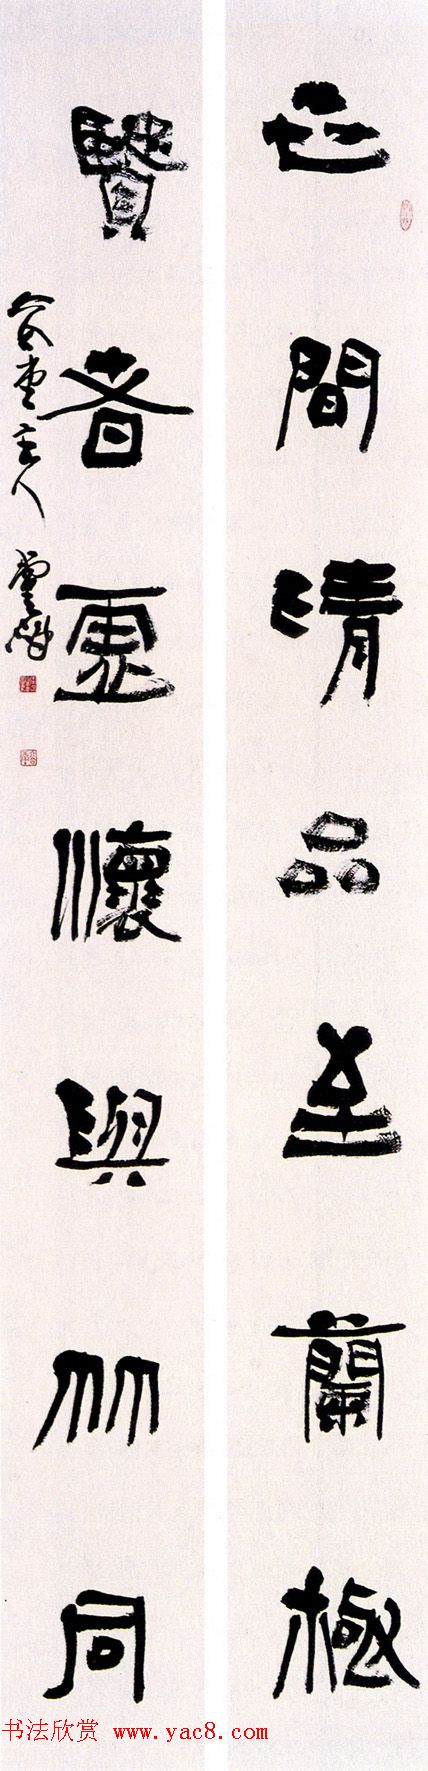 世間清品至蘭極
賢者虛懷與竹同
堂主人
书法欣赏 www.yac8.com